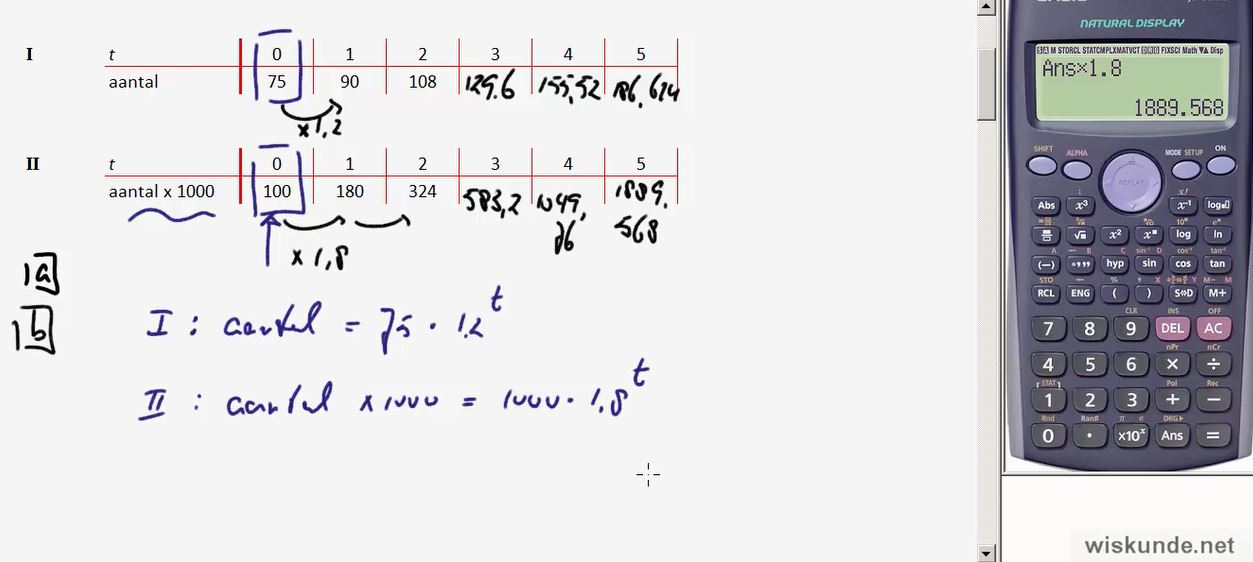 I t 0 1 2 3 4 5
aantal 75 90 108 129.6 155,52 186,624
x 1,2
II t 0 1 2 3 4 5
aantal x 1000 100 180 324 583,2 1049,76 1889.568
x 1,8
1a
1b
I : aantal = 75 · 1.2^t
II : aantal x 1000 = 1000 · 1,8^t
NATURAL DISPLAY
S A M STO RCL STAT CMPLX MAT VCT D R G FIX SCI Math ▼▲ Disp
Ans×1.8
1889.568
SHIFT ALPHA REPLAY MODE SETUP ON
Abs x³ x⁻¹ log
√ x² log ln
(−) hyp sin cos tan
RCL ENG ( ) S⇔D M+
7 8 9 DEL AC
4 5 6 × ÷
1 2 3 + −
0 . ×10ˣ Ans =
wiskunde.net